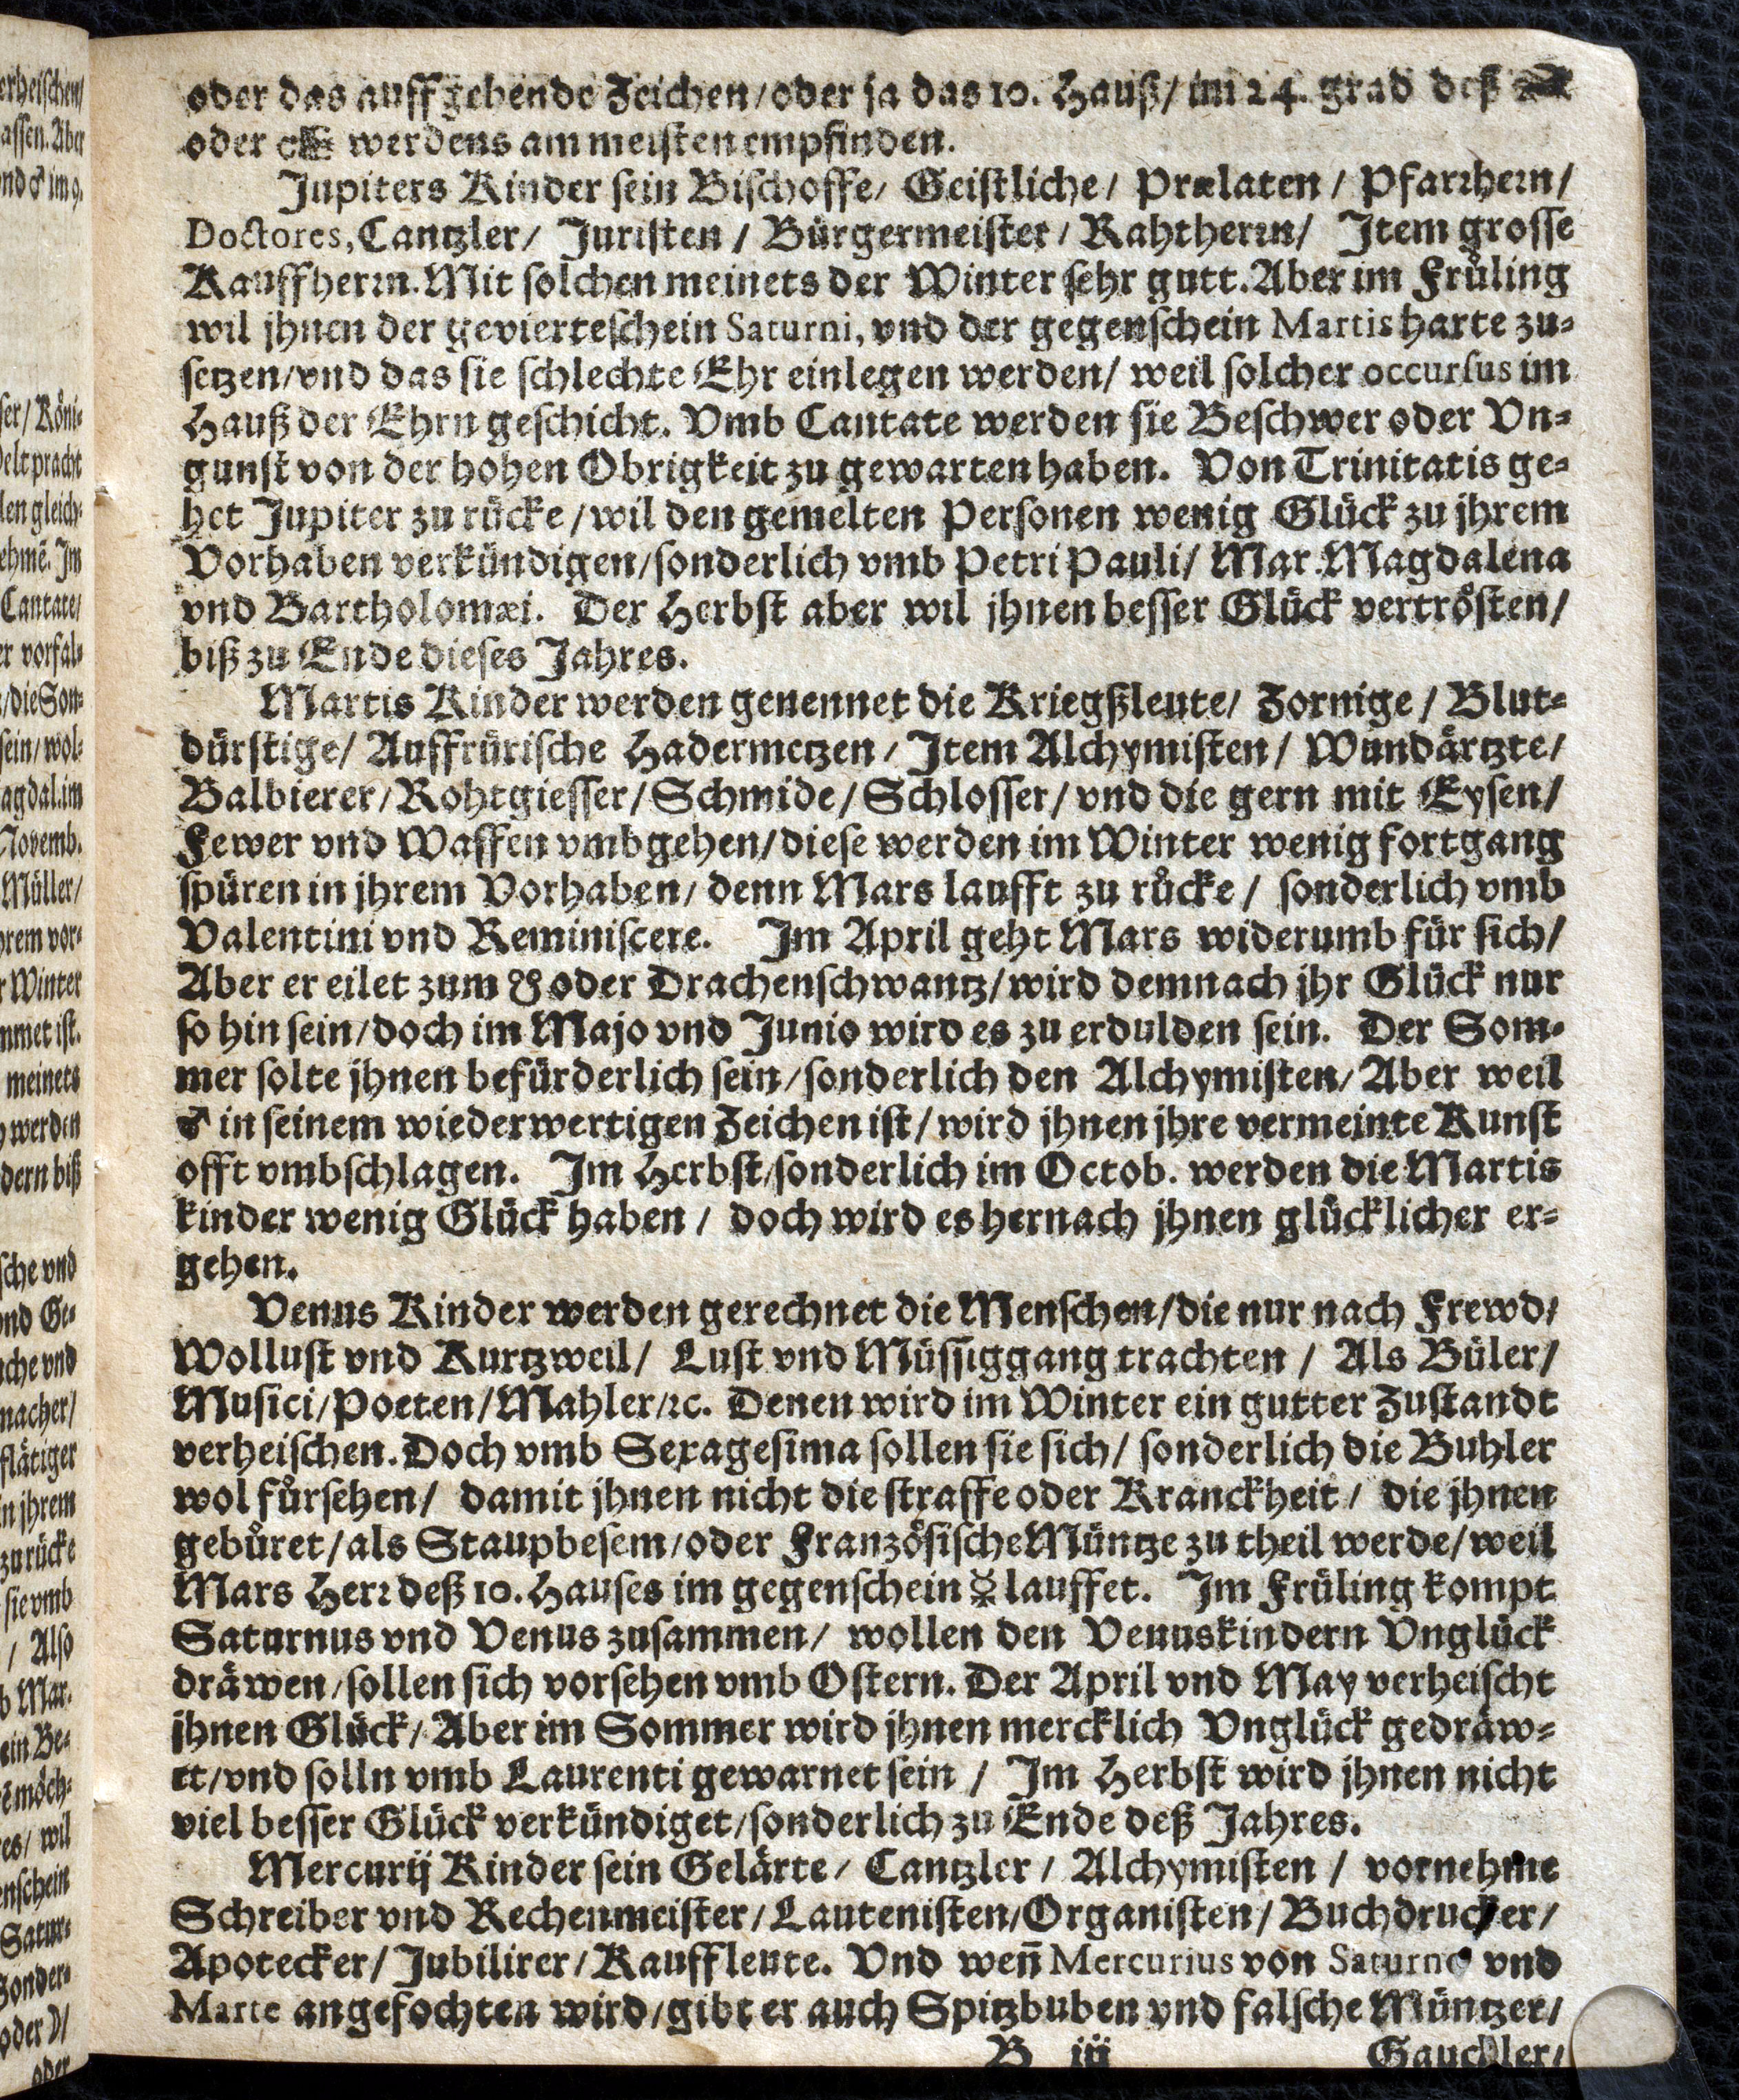 oder das auffgehende Zeichen/oder ja das 10. Hauß/im 24. grad deß
oder werdens am meisten empfinden.
Jupiters Kinder sein Bischoffe/ Geistliche/ Prælaten/ Pfarrhern/
Doctores, Cantzler/ Juristen/ Bürgermeister/ Rahtherrn/ Item grosse
Kauffherrn. Mit solchen meinets der Winter sehr gutt. Aber im Früling
wil jhnen der gevierteschein Saturni, vnd der gegenschein Martis harte zu-
setzen/vnd das sie schlechte Ehr einlegen werden/ weil solcher occursus im
Hauß der Ehrn geschicht. Vmb Cantate werden sie Beschwer oder Vn-
gunst von der hohen Obrigkeit zu gewarten haben. Von Trinitatis ge-
het Jupiter zu rücke/wil den gemelten Personen wenig Glück zu jhrem
Vorhaben verkündigen/sonderlich vmb Petri Pauli/ Mar. Magdalena
vnd Bartholomæi. Der Herbst aber wil jhnen besser Glück vertrösten/
biß zu Ende dieses Jahres.
Martis Kinder werden genennet die Kriegßleute/ Zornige/ Blut-
dürstige/ Auffrürische Hadermetzen/ Item Alchymisten/ Wundärtzte/
Balbierer/Rohtgiesser/Schmide/Schlosser/vnd die gern mit Eysen/
Fewer vnd Waffen vmbgehen/diese werden im Winter wenig fortgang
spüren in jhrem Vorhaben/ denn Mars laufft zu rücke/ sonderlich vmb
Valentini vnd Reminiscere. Im April geht Mars widerumb für sich/
Aber er eilet zum ☋ oder Drachenschwantz/wird demnach jhr Glück nur
so hin sein/doch im Majo vnd Junio wird es zu erdulden sein. Der Som-
mer solte jhnen befürderlich sein/sonderlich den Alchymisten/Aber weil
♂ in seinem wiederwertigen Zeichen ist/wird jhnen jhre vermeinte Kunst
offt vmbschlagen. Im Herbst/sonderlich im Octob. werden die Martis
kinder wenig Glück haben/ doch wird es hernach jhnen glücklicher er-
gehen.
Venus Kinder werden gerechnet die Menschen/die nur nach Frewd/
Wollust vnd Kurtzweil/ Lust vnd Müssiggang trachten/ Als Büler/
Musici/Poeten/Mahler/ꝛc. Denen wird im Winter ein gutter Zustandt
verheischen. Doch vmb Sexagesima sollen sie sich/ sonderlich die Buhler
wol fürsehen/ damit jhnen nicht die straffe oder Kranckheit/ die jhnen
gebüret/als Staupbesem/oder Französische Müntze zu theil werde/weil
Mars Herr deß 10. Hauses im gegenschein ☿ lauffet. Im Früling kompt
Saturnus vnd Venus zusammen/ wollen den Venuskindern Vnglück
dräwen/sollen sich vorsehen vmb Ostern. Der April vnd May verheischt
jhnen Glück/Aber im Sommer wird jhnen mercklich Vnglück gedräw-
et/vnd solln vmb Laurenti gewarnet sein/ Im Herbst wird jhnen nicht
viel besser Glück verkündiget/sonderlich zu Ende deß Jahres.
Mercurij Kinder sein Gelärte/ Cantzler/ Alchymisten/ vornehme
Schreiber vnd Rechenmeister/Lautenisten/Organisten/Buchdrucker/
Apotecker/Jubilirer/Kauffleute. Vnd weñ Mercurius von Saturno vnd
Marte angefochten wird/gibt er auch Spitzbuben vnd falsche Müntzer/
B iij Gauckler/